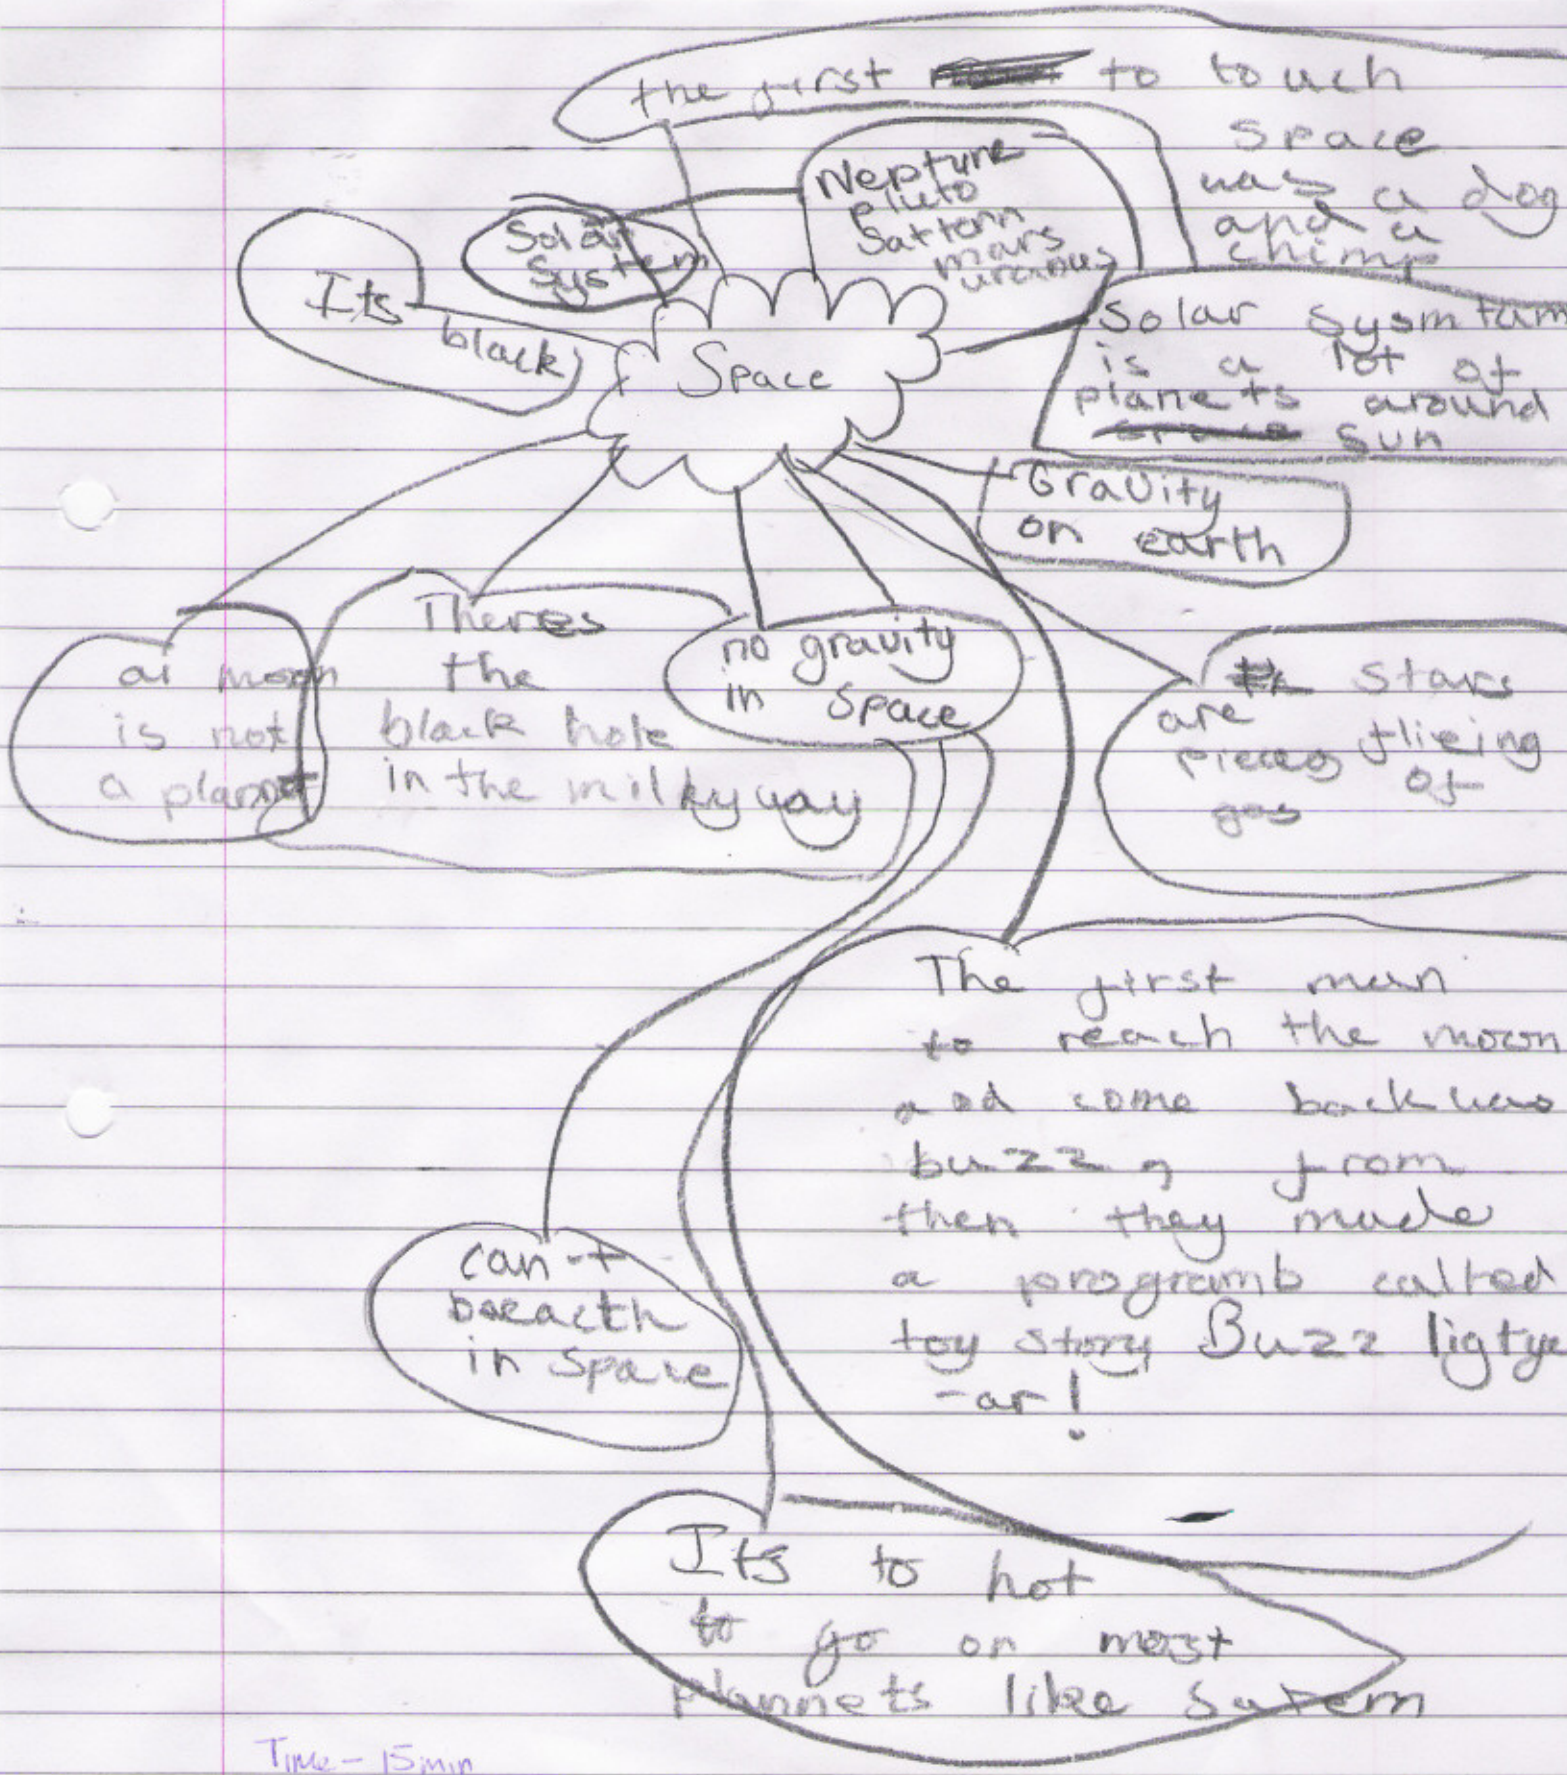 the first to touch
space
was a dog
and a
chimp
Neptune
pluto
Sattern
mars
urcanus
Solar
System
Its
black
Space
Solar sysmtum
is a lot of
planets around
sun
Gravity
on earth
Theres
the
black hole
in the milkyway
no gravity
in space
a moon
is not
a plannet
stars
are flieing
pieces of
gas
The first man
to reach the moon
and come back was
buzz, from
then they made
a programb called
toy story Buzz ligtye
-ar!
can-t
breacth
in space
Its to hot
to go on most
plannets like Satern
Time - 15min